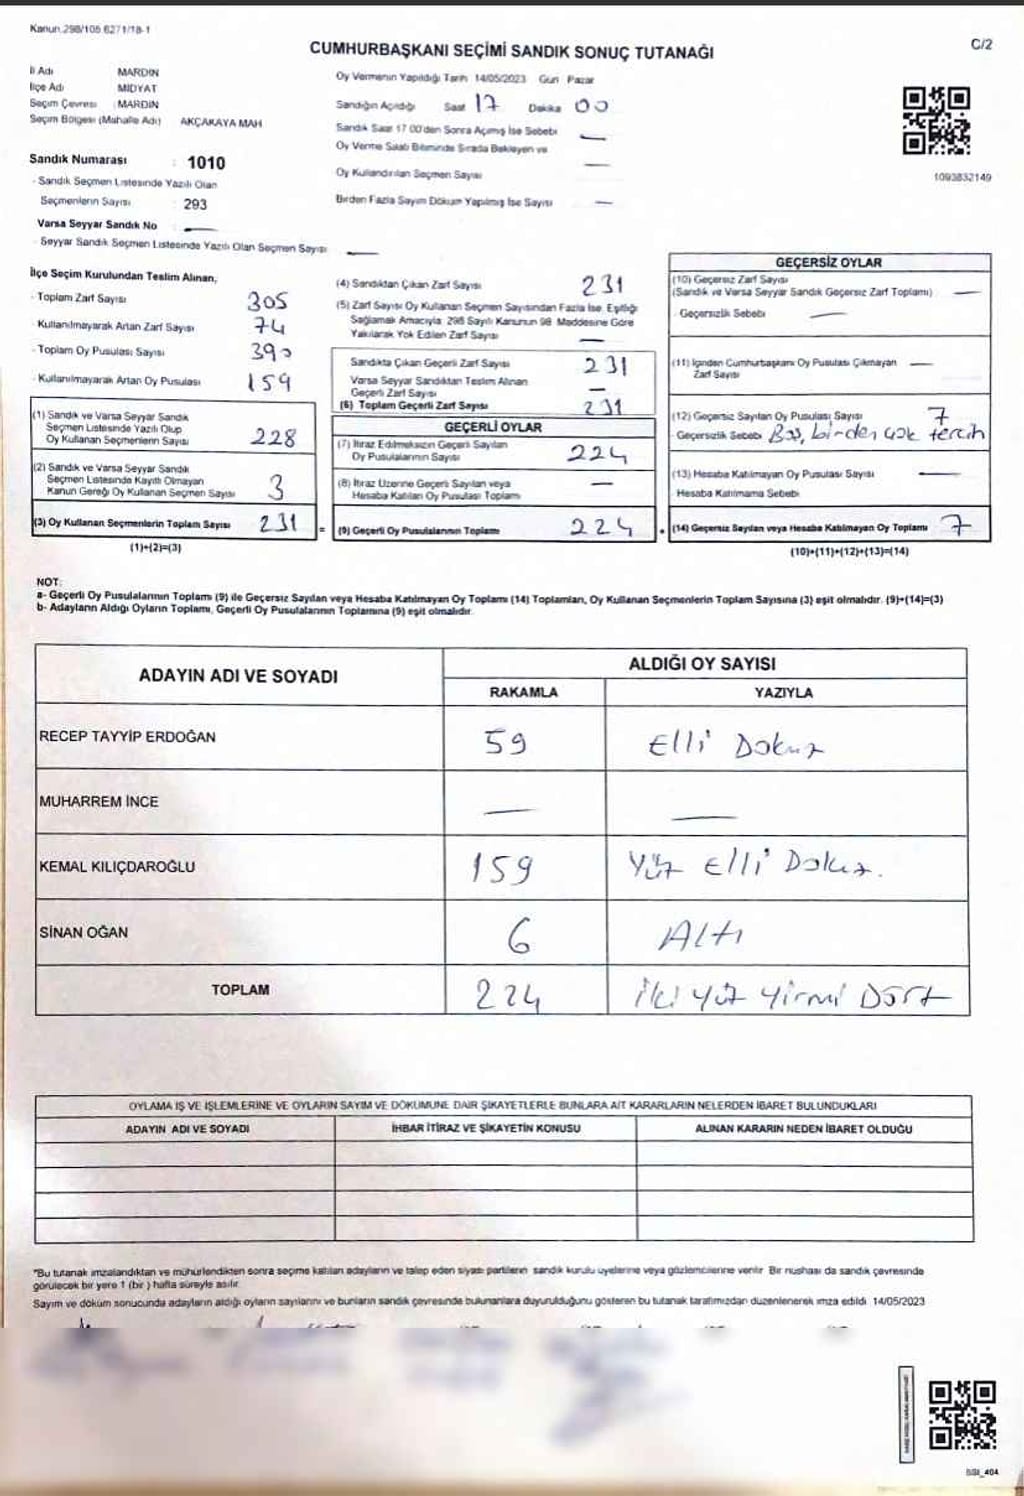 Kanun.298/105.6271/18-1
C/2
CUMHURBAŞKANI SEÇİMİ SANDIK SONUÇ TUTANAĞI
İl Adı MARDİN
İlçe Adı MİDYAT
Seçim Çevresi : MARDİN
Seçim Bölgesi (Mahalle Adı) AKÇAKAYA MAH
Sandık Numarası : 1010
- Sandık Seçmen Listesinde Yazılı Olan
Seçmenlerin Sayısı : 293
Varsa Seyyar Sandık No —
- Seyyar Sandık Seçmen Listesinde Yazılı Olan Seçmen Sayısı —
Oy Vermenin Yapıldığı Tarih 14/05/2023 Gün Pazar
Sandığın Açıldığı Saat 17 Dakika 00
Sandık Saat 17 00'den Sonra Açımış İse Sebebi —
Oy Verme Saati Bitiminde Sırada Bekleyen ve
Oy Kullandırılan Seçmen Sayısı —
Birden Fazla Sayım Döküm Yapılmış İse Sayısı —
1093832149
İlçe Seçim Kurulundan Teslim Alınan,
- Toplam Zarf Sayısı 305
- Kullanılmayarak Artan Zarf Sayısı 74
- Toplam Oy Pusulası Sayısı 390
- Kullanılmayarak Artan Oy Pusulası 159
(1) Sandık ve Varsa Seyyar Sandık
Seçmen Listesinde Yazılı Olup
Oy Kullanan Seçmenlerin Sayısı 228
(2) Sandık ve Varsa Seyyar Sandık
Seçmen Listesinde Kayıtlı Olmayan
Kanun Gereği Oy Kullanan Seçmen Sayısı 3
(3) Oy Kullanan Seçmenlerin Toplam Sayısı 231
(1)+(2)=(3)
(4) Sandıktan Çıkan Zarf Sayısı 231
(5) Zarf Sayısı Oy Kullanan Seçmen Sayısından Fazla İse, Eşitliği
Sağlamak Amacıyla 298 Sayılı Kanunun 98 Maddesine Göre
Yakılarak Yok Edilen Zarf Sayısı —
Sandıkta Çıkan Geçerli Zarf Sayısı 231
Varsa Seyyar Sandıktan Teslim Alınan
Geçerli Zarf Sayısı —
(6) Toplam Geçerli Zarf Sayısı 231
GEÇERLİ OYLAR
(7) İtiraz Edilmeksizin Geçerli Sayılan
Oy Pusulalarının Sayısı 224
(8) İtiraz Üzerine Geçerli Sayılan veya
Hesaba Katılan Oy Pusulası Toplamı —
= (9) Geçerli Oy Pusulalarının Toplamı 224
GEÇERSİZ OYLAR
(10) Geçersiz Zarf Sayısı
(Sandık ve Varsa Seyyar Sandık Geçersiz Zarf Toplamı) —
- Geçersizlik Sebebi —
(11) İçinden Cumhurbaşkanı Oy Pusulası Çıkmayan —
Zarf Sayısı
(12) Geçersiz Sayılan Oy Pusulası Sayısı 7
- Geçersizlik Sebebi Boş, birden çok tercih
(13) Hesaba Katılmayan Oy Pusulası Sayısı —
- Hesaba Katılmama Sebebi
+ (14) Geçersiz Sayılan veya Hesaba Katılmayan Oy Toplamı 7
(10)+(11)+(12)+(13)=(14)
NOT:
a- Geçerli Oy Pusulalarının Toplamı (9) ile Geçersiz Sayılan veya Hesaba Katılmayan Oy Toplamı (14) Toplamları, Oy Kullanan Seçmenlerin Toplam Sayısına (3) eşit olmalıdır. (9)+(14)=(3)
b- Adayların Aldığı Oyların Toplamı, Geçerli Oy Pusulalarının Toplamına (9) eşit olmalıdır.
ADAYIN ADI VE SOYADI ALDIĞI OY SAYISI
RAKAMLA YAZIYLA
RECEP TAYYİP ERDOĞAN 59 Elli Dokuz
MUHARREM İNCE — —
KEMAL KILIÇDAROĞLU 159 Yüz Elli Dokuz.
SİNAN OĞAN 6 Altı
TOPLAM 224 İki Yüz Yirmi Dört
OYLAMA İŞ VE İŞLEMLERİNE VE OYLARIN SAYIM VE DÖKÜMÜNE DAİR ŞİKAYETLERLE BUNLARA AİT KARARLARIN NELERDEN İBARET BULUNDUKLARI
ADAYIN ADI VE SOYADI İHBAR İTİRAZ VE ŞİKAYETİN KONUSU ALINAN KARARIN NEDEN İBARET OLDUĞU
*Bu tutanak imzalandıktan ve mühürlendikten sonra seçime katılan adayların ve talep eden siyasi partilerin sandık kurulu üyelerine veya gözlemcilerine verilir. Bir nüshası da sandık çevresinde
görülecek bir yere 1 (bir ) hafta süreyle asılır.
Sayım ve döküm sonucunda adayların aldığı oyların sayılarını ve bunların sandık çevresinde bulunanlara duyurulduğunu gösteren bu tutanak tarafımızdan düzenlenerek imza edildi 14/05/2023